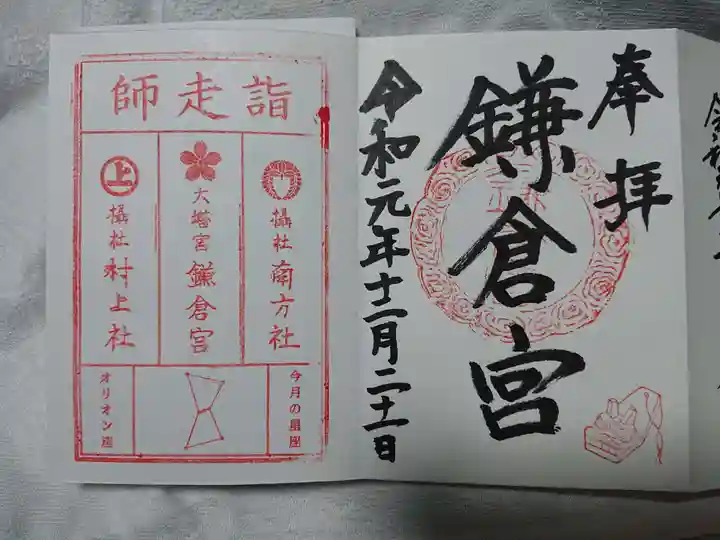 奉拝
鎌倉宮
令和元年十二月二十一日
師走詣
摂社南方社
大塔宮鎌倉宮
上
摂社村上社
今月の星座
オリオン座